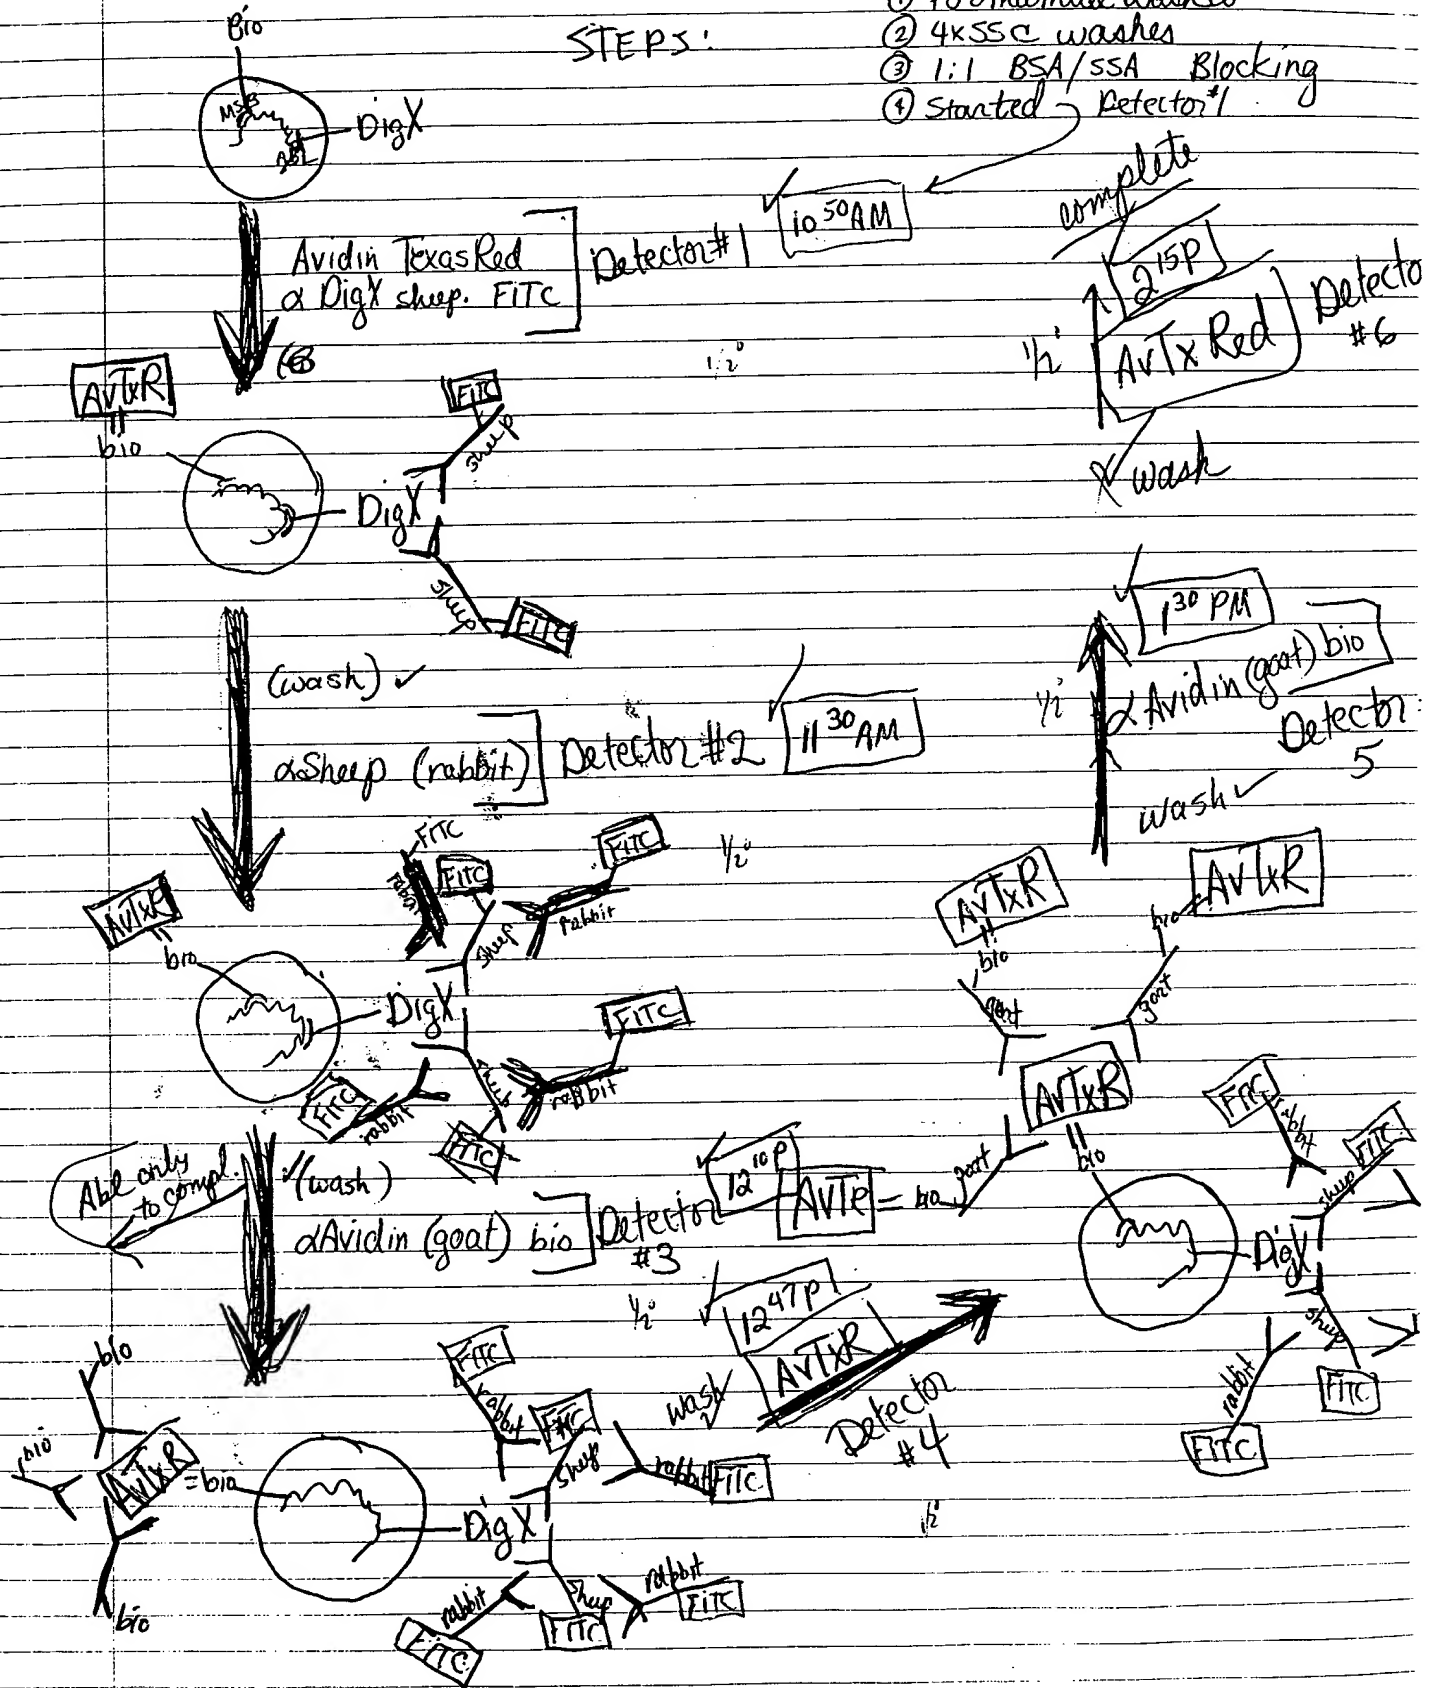 STEPS:
② 4xSSC washes
③ 1:1 BSA/SSA Blocking
④ Started Detector #1
Bio
DigX
Avidin Texas Red
α DigX sheep. FITC
Detector #1
10 50 AM
complete
2 15 P
1/2°
AvTxRed
Detecto
#6
wash
1/2°
AvTxR
bio
FITC
sheep
DigX
sheep
FITC
(wash) ✓
αSheep (rabbit)
Detector #2
11 30 AM
1 30 PM
1/2°
αAvidin (goat) bio
Detector
5
wash ✓
FITC
rabbit
FITC
FITC
rabbit
sheep
1/2°
AvTxR
bio
DigX
FITC
rabbit
sheep
FITC
rabbit
FITC
AvTxR
bio
goat
AvTxR
bio
goat
AvTxR
bio
goat
bio
AvTR
FITC
rabbit
FITC
sheep
DigX
sheep
FITC
rabbit
FITC
Abl only
to compl.
(wash)
αAvidin (goat) bio
Detector
#3
12 10 P
1/2°
12 47 P
AvTxR
wash
Detector
#4
1/2°
bio
bio
AvTxR
bio
bio
FITC
rabbit
FITC
sheep
rabbit
FITC
DigX
rabbit
FITC
sheep
FITC
rabbit
FITC